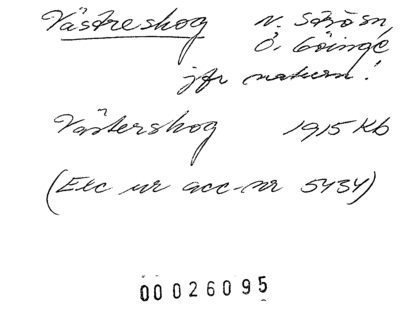 Västreskog N. Strösn,
Ö. Göinge
jfr naturn!
Västerskog 1915 Kb
(Exc ur acc-nr 5434)
00026095